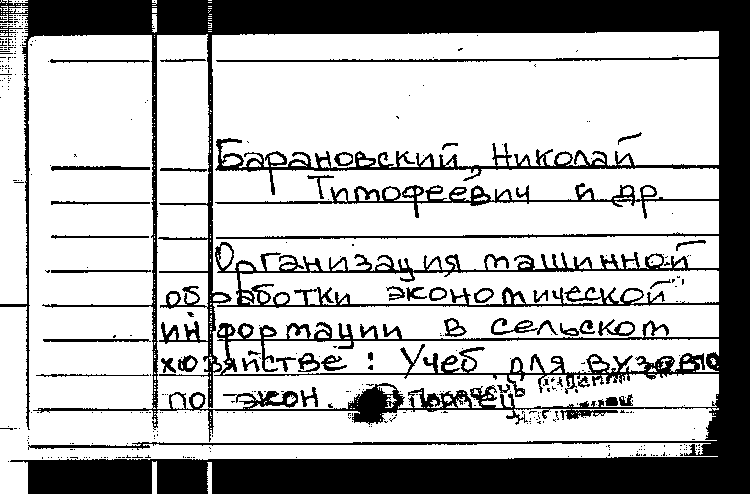 Барановский, Николай
Тимофеевич и др.
Организация машинной
обработки экономической
информации в сельском
хозяйстве : Учеб. для вузов
по экон.